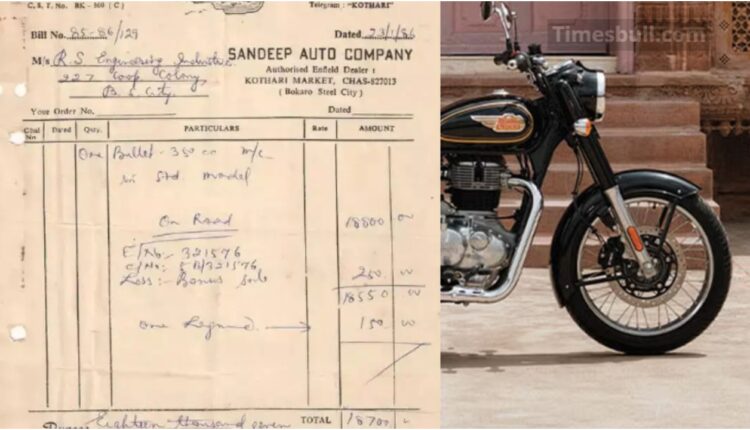 C. S. T. No. BK - 560 ( C )
Telegram : "KOTHARI"
Bill No. 85-86/129
Dated 23/1/86
M/s R. S. Engineering Industries
SANDEEP AUTO COMPANY
227 Coop Colony,
Authorised Enfield Dealer :
B. S. City
KOTHARI MARKET, CHAS-827013
( Bokaro Steel City )
Your Order No.
Dated
Chal No. Dated Qnty. PARTICULARS Rate AMOUNT
One Bullet - 350 cc m/c
in Std. model
On Road 18800 00
E/No:- 321576
C/No:- 321576
Less:- Bonus 250 00
18550 00
One 150 00
Eighteen thousand seven
TOTAL 18700
Timesbull.com